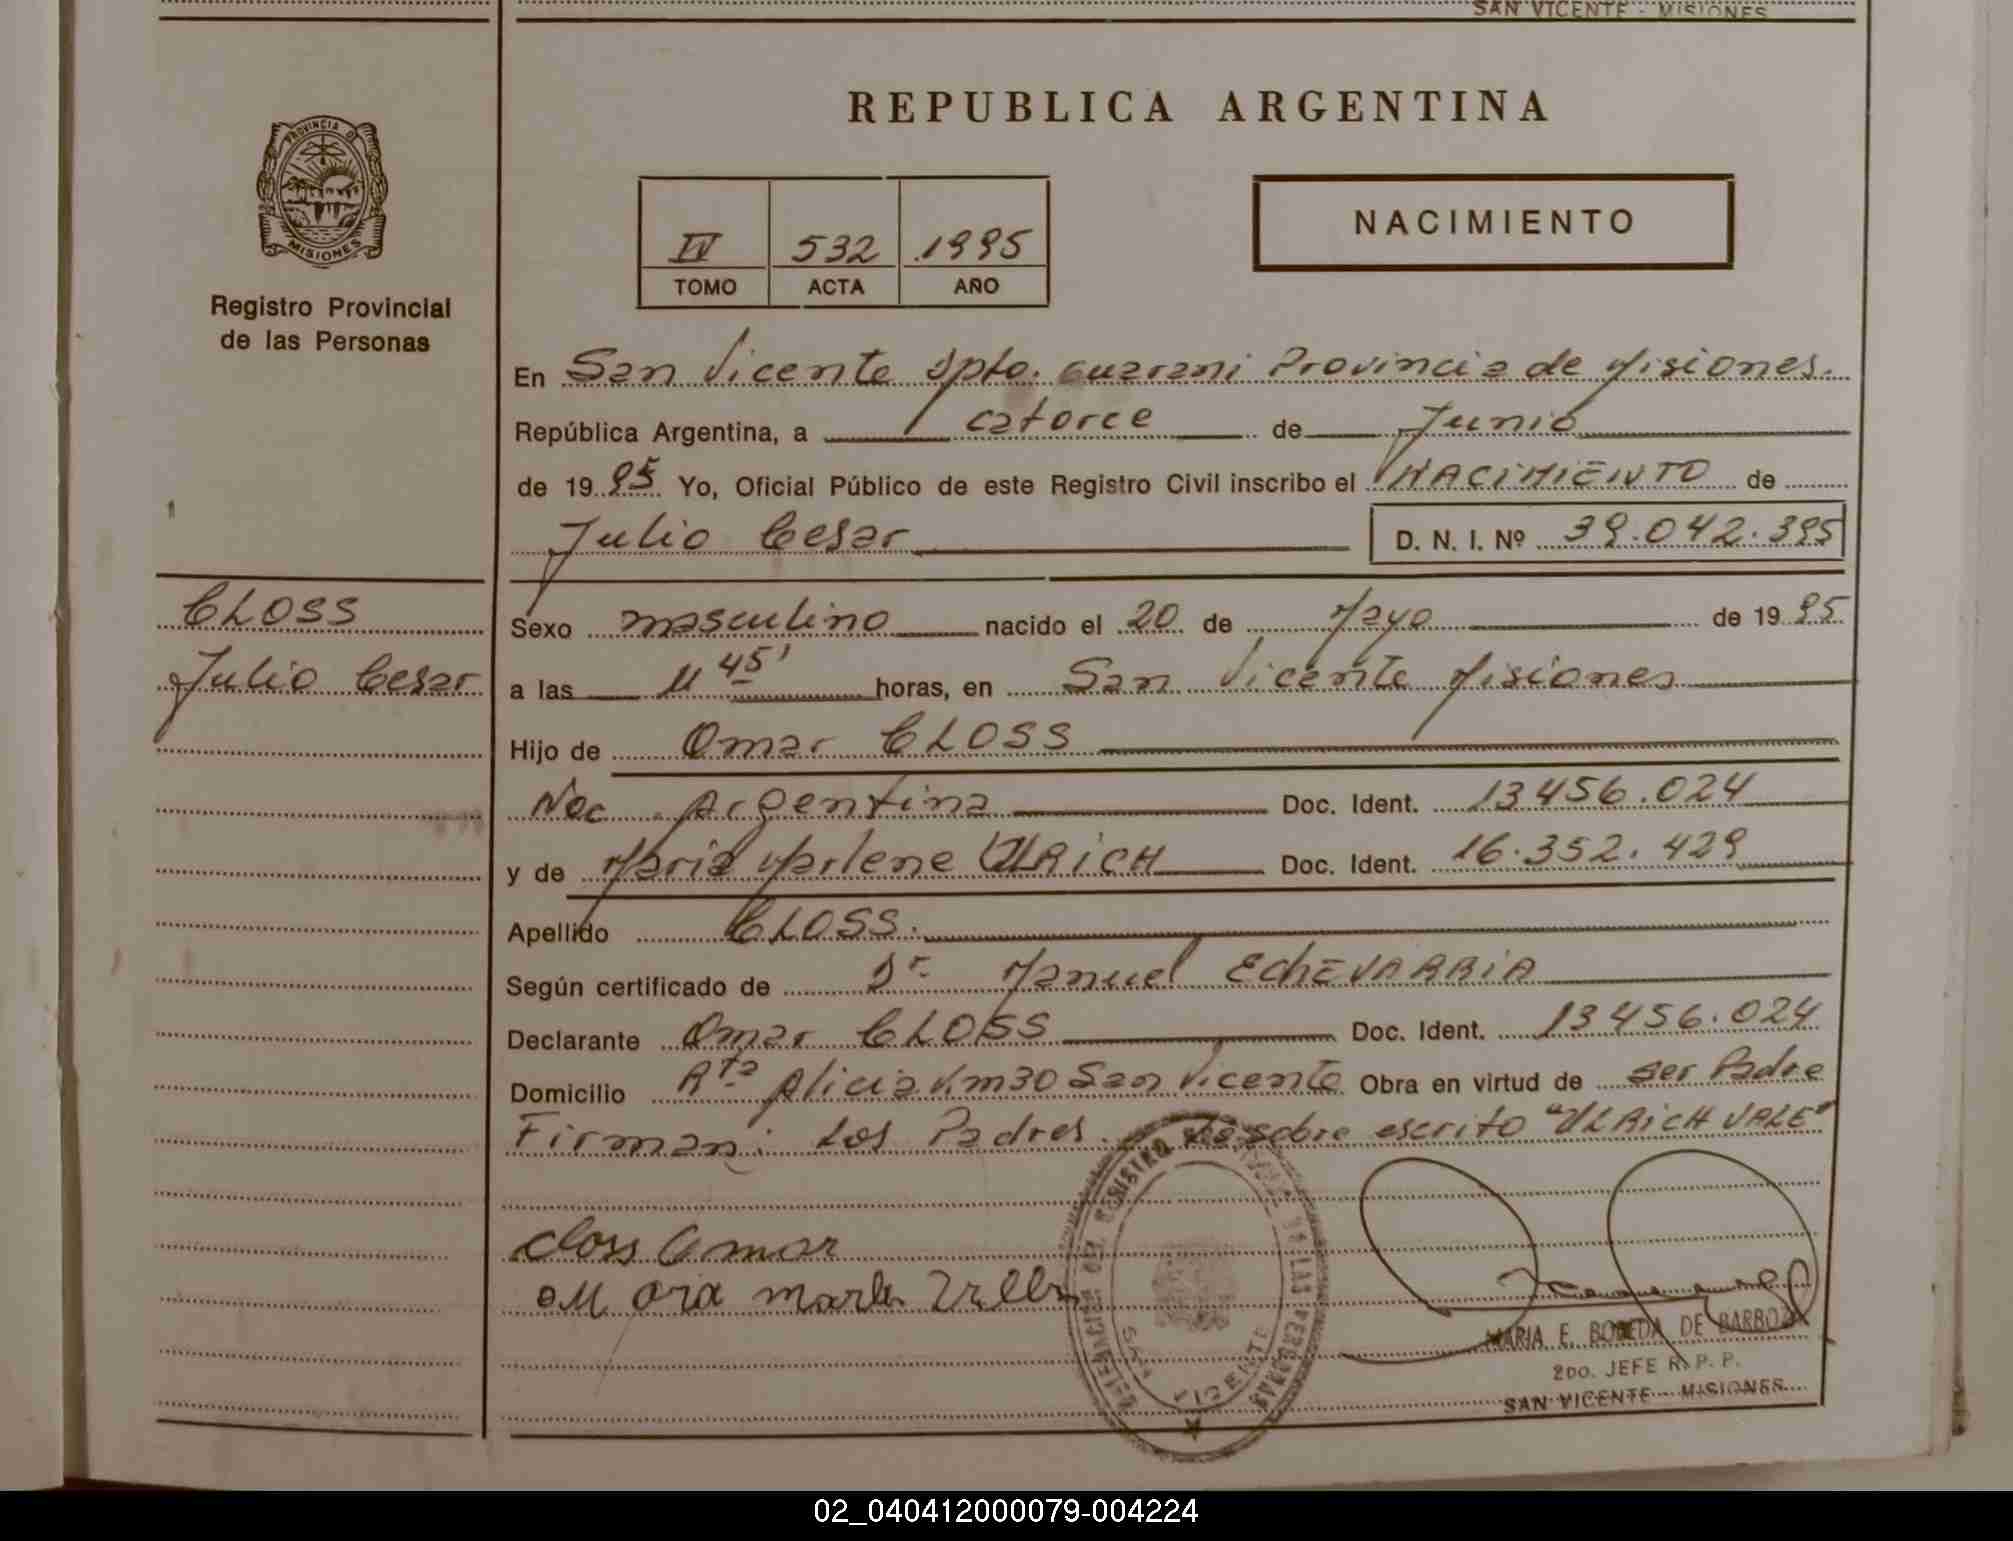 SAN VICENTE - MISIONES
PROVINCIA DE
MISIONES
Registro Provincial
de las Personas
REPUBLICA ARGENTINA
IV 532 1995
TOMO ACTA AÑO
NACIMIENTO
En San Vicente Dpto. Guarani Provincia de Misiones.
República Argentina, a catorce de Junio
de 1995 Yo, Oficial Público de este Registro Civil inscribo el NACIMIENTO de
Julio Cesar D. N. I. Nº 39.042.395
CLOSS
Julio Cesar
Sexo masculino nacido el 20 de Mayo de 1995
a las 11 45' horas, en San Vicente Misiones
Hijo de Omar CLOSS
Nac. Argentina Doc. Ident. 13.456.024
y de Maria Marlene ULRICH Doc. Ident. 16.352.429
Apellido CLOSS.
Según certificado de Dr. Manuel EchEVARRIA
Declarante Omar CLOSS Doc. Ident. 13.456.024
Domicilio Rta Alicia Km 30 San Vicente Obra en virtud de ser Padre
Firman: Los Padres. Lo sobre escrito "ULRICH VALE"
Closs Omar
Maria
DELEGACION DEL REGISTRO DE LAS PERSONAS
SAN VICENTE
MARIA E. BOBEDA DE BARBOZA
2DO. JEFE R. P. P.
SAN VICENTE - MISIONES
02_040412000079-004224